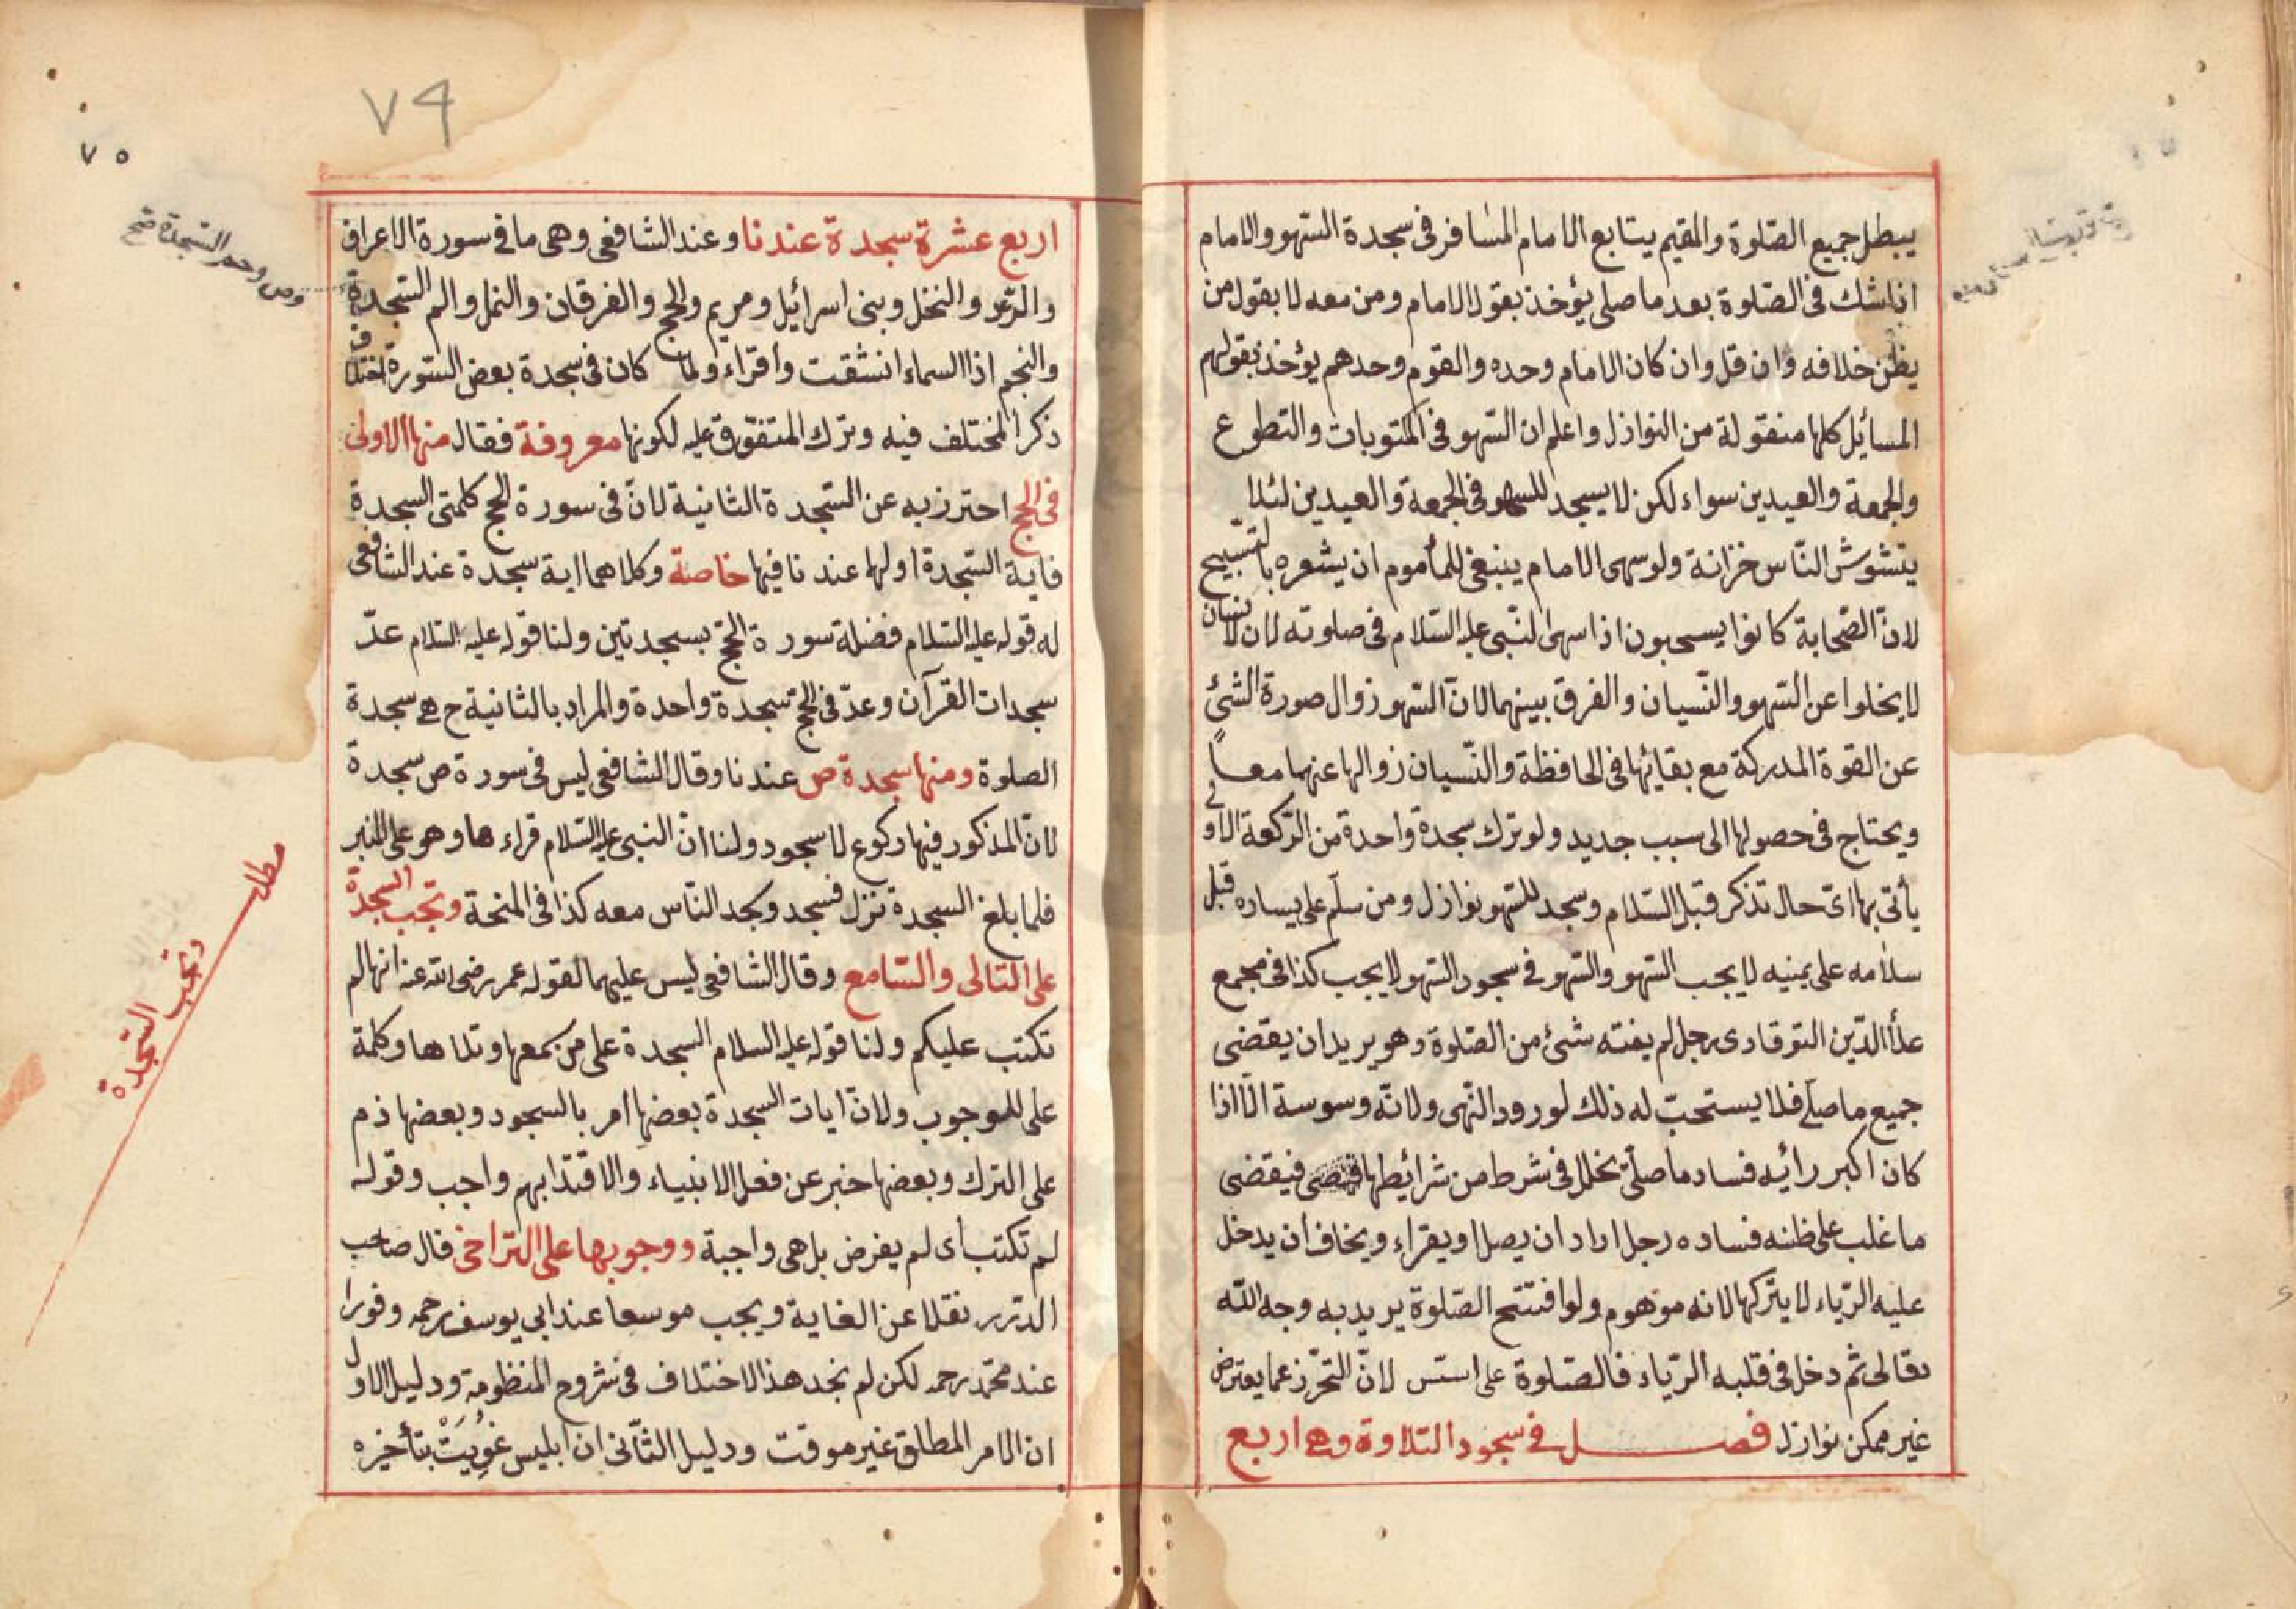 يبطل جميع الصّلوة والمقيم يتابع الامام المسافر فى سجدة السّهو والامام
اذا شك فى الصّلوة بعد ما صلى يؤخذ بقول الامام ومن معه لا بقول من
يظن خلافه وان قل وان كان الامام وحده والقوم وحدهم يؤخذ بقولهم
المسائل كلها منقولة من النوازل واعلم ان السّهو فى المكتوبات والتطوع
والجمعة والعيدين سواء لكن لا يسجد للسهو فى الجمعة والعيدين لئلا
يتشوش النّاس خزانة ولو سهى الامام ينبغى للمأموم ان يشعره بالتسبيح
لانّ الصّحابة كانوا يسبحون اذا سهى النّبى عليه السّلام فى صلوته لان الانسان
لا يخلوا عن السّهو والنّسيان والفرق بينهما لانّ السّهو زوال صورة الشئ
عن القوة المدركة مع بقائها فى الحافظة والنّسيان زوالها عنهما معاً
ويحتاج فى حصولها الى سبب جديد ولو ترك سجدة واحدة من الرّكعة الاولى
يأتى بها اىّ حال تذكر قبل السّلام وسجد للسّهو نوازل ومن سلّم على يساره قبل
سلامه على يمينه لا يجب السّهو والسّهو فى سجود السّهو لا يجب كذا فى مجمع
علأ الدّين التوقادى رجل لم يفته شئ من الصّلوة وهو يريد ان يقضى
جميع ما صلّى فلا يستحبّ له ذلك لورود النّهى ولانّه وسوسة الّا اذا
كان اكبر رائيه فساد ما صلّى بخلل فى شرط من شرائيطها فيقضى
ما غلب على ظنه فساده رجل اراد ان يصلى او يقراء ويخاف أن يدخل
عليه الرّياء لا يتركها لانه موهوم ولو افتتح الصّلوة يريد به وجه اللّه
تعالى ثمّ دخل فى قلبه الرّياء فالصّلوة على اسّس لانّ التحرّز عما يعترض
غير ممكن نوازل فصل فى سجود التلاوة وهى اربع
٧٩
٧٥
اربع عشرة سجدة عندنا وعند الشافعى وهى ما فى سورة الاعراف
والرّعد والنحل وبنى اسرائيل ومريم والحج والفرقان والنمل والم السّجدة
وص وحم السّجدة صح
والنجم اذا السماء انشقت واقراء ولما كان فى سجدة بعض السّورة اختلاف
ذكر المختلف فيه وترك المتفق عليه لكونها معروفة فقال منها الاولى
فى الحج احترز به عن السّجدة الثانية لانّ فى سورة الحج كلمتى السجدة
فاية السّجدة اولها عندنا فيها خاصة وكلاهما اية سجدة عند الشافعى
له قوله عليه السّلام فضلة سورة الحجّ بسجدتين ولنا قوله عليه السّلام عدّ
سجدات القرآن وعدّ فى الحجّ سجدة واحدة والمراد بالثانية ح هى سجدة
الصلوة ومنها سجدة ص عندنا وقال الشافعى ليس فى سورة ص سجدة
لانّ المذكور فيها ركوع لا سجود ولنا انّ النبى عليه السّلام قراء ها وهو على المنبر
فلما بلغ السجدة نزل فسجد وسجد النّاس معه كذا فى المنحة وتجب السجدة
على التالى والسّامع وقال الشافعى ليس عليهما لقوله عمر رضى الله عنه انها لم
تكتب عليكم ولنا قوله عليه السلام السجدة على من سمعها وتلاها وكلمة
على للوجوب ولانّ ايات السجدة بعضها امر بالسجود وبعضها ذم
على الترك وبعضها خبر عن فعل الانبياء والاقتدا بهم واجب وقوله
لم تكتب أى لم يفرض بل هى واجبة ووجوبها على التراخى قال صاحب
الدّرر نقلا عن الغاية ويجب موسعا عند ابى يوسف رحمه وفورا
عند محمّد رحمه لكن لم نجد هذا الاختلاف فى شروح المنظومة ودليل الاول
ان الامر المطلق غير موقت ودليل الثّانى ان ابليس غُوِيَتْ بتأخيره
مطلب
وتجب السّجدة